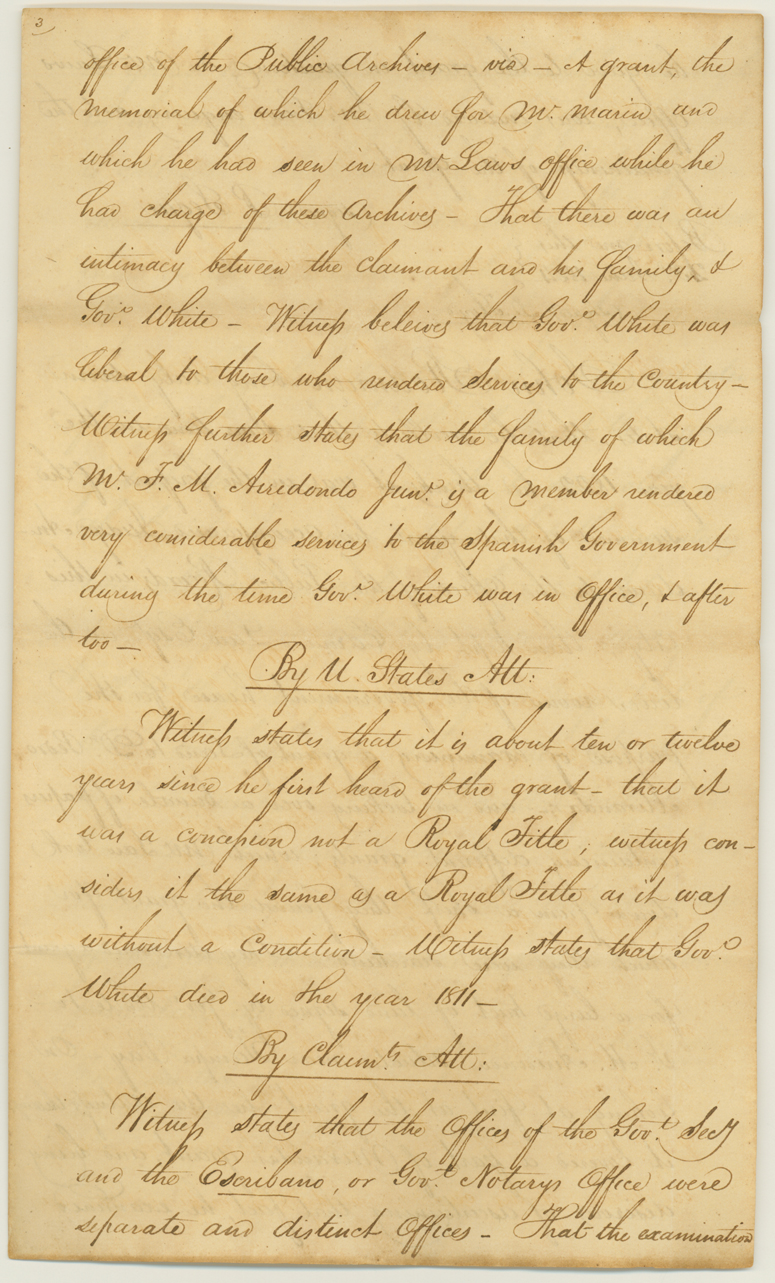 3
office of the Public Archives - viz - A grant, the
memorial of which he drew for Mr. Marin and
which he had seen in Mr. Laws office while he
had charge of these Archives - That there was an
intimacy between the Claimant and his family, &
Govr. White - Witness beleives that Govr. White was
liberal to those who rendered Services to the Country -
Witness further states that the family of which
Mr. F. M. Arredondo Junr. is a member rendered
very considerable services to the Spanish Government
during the time Govr. White was in Office, & after
too -
By U. States Att:
Witness states that it is about ten or twelve
years since he first heard of the grant - that it
was a concession not a Royal Title; witness con-
siders it the same as a Royal Title as it was
without a Condition - Witness states that Govr.
White died in the year 1811 -
By Claimts. Att:
Witness states that the Offices of the Govt. Secy
and the Escribano, or Govt. Notarys Office were
separate and distinct Offices - That the examination